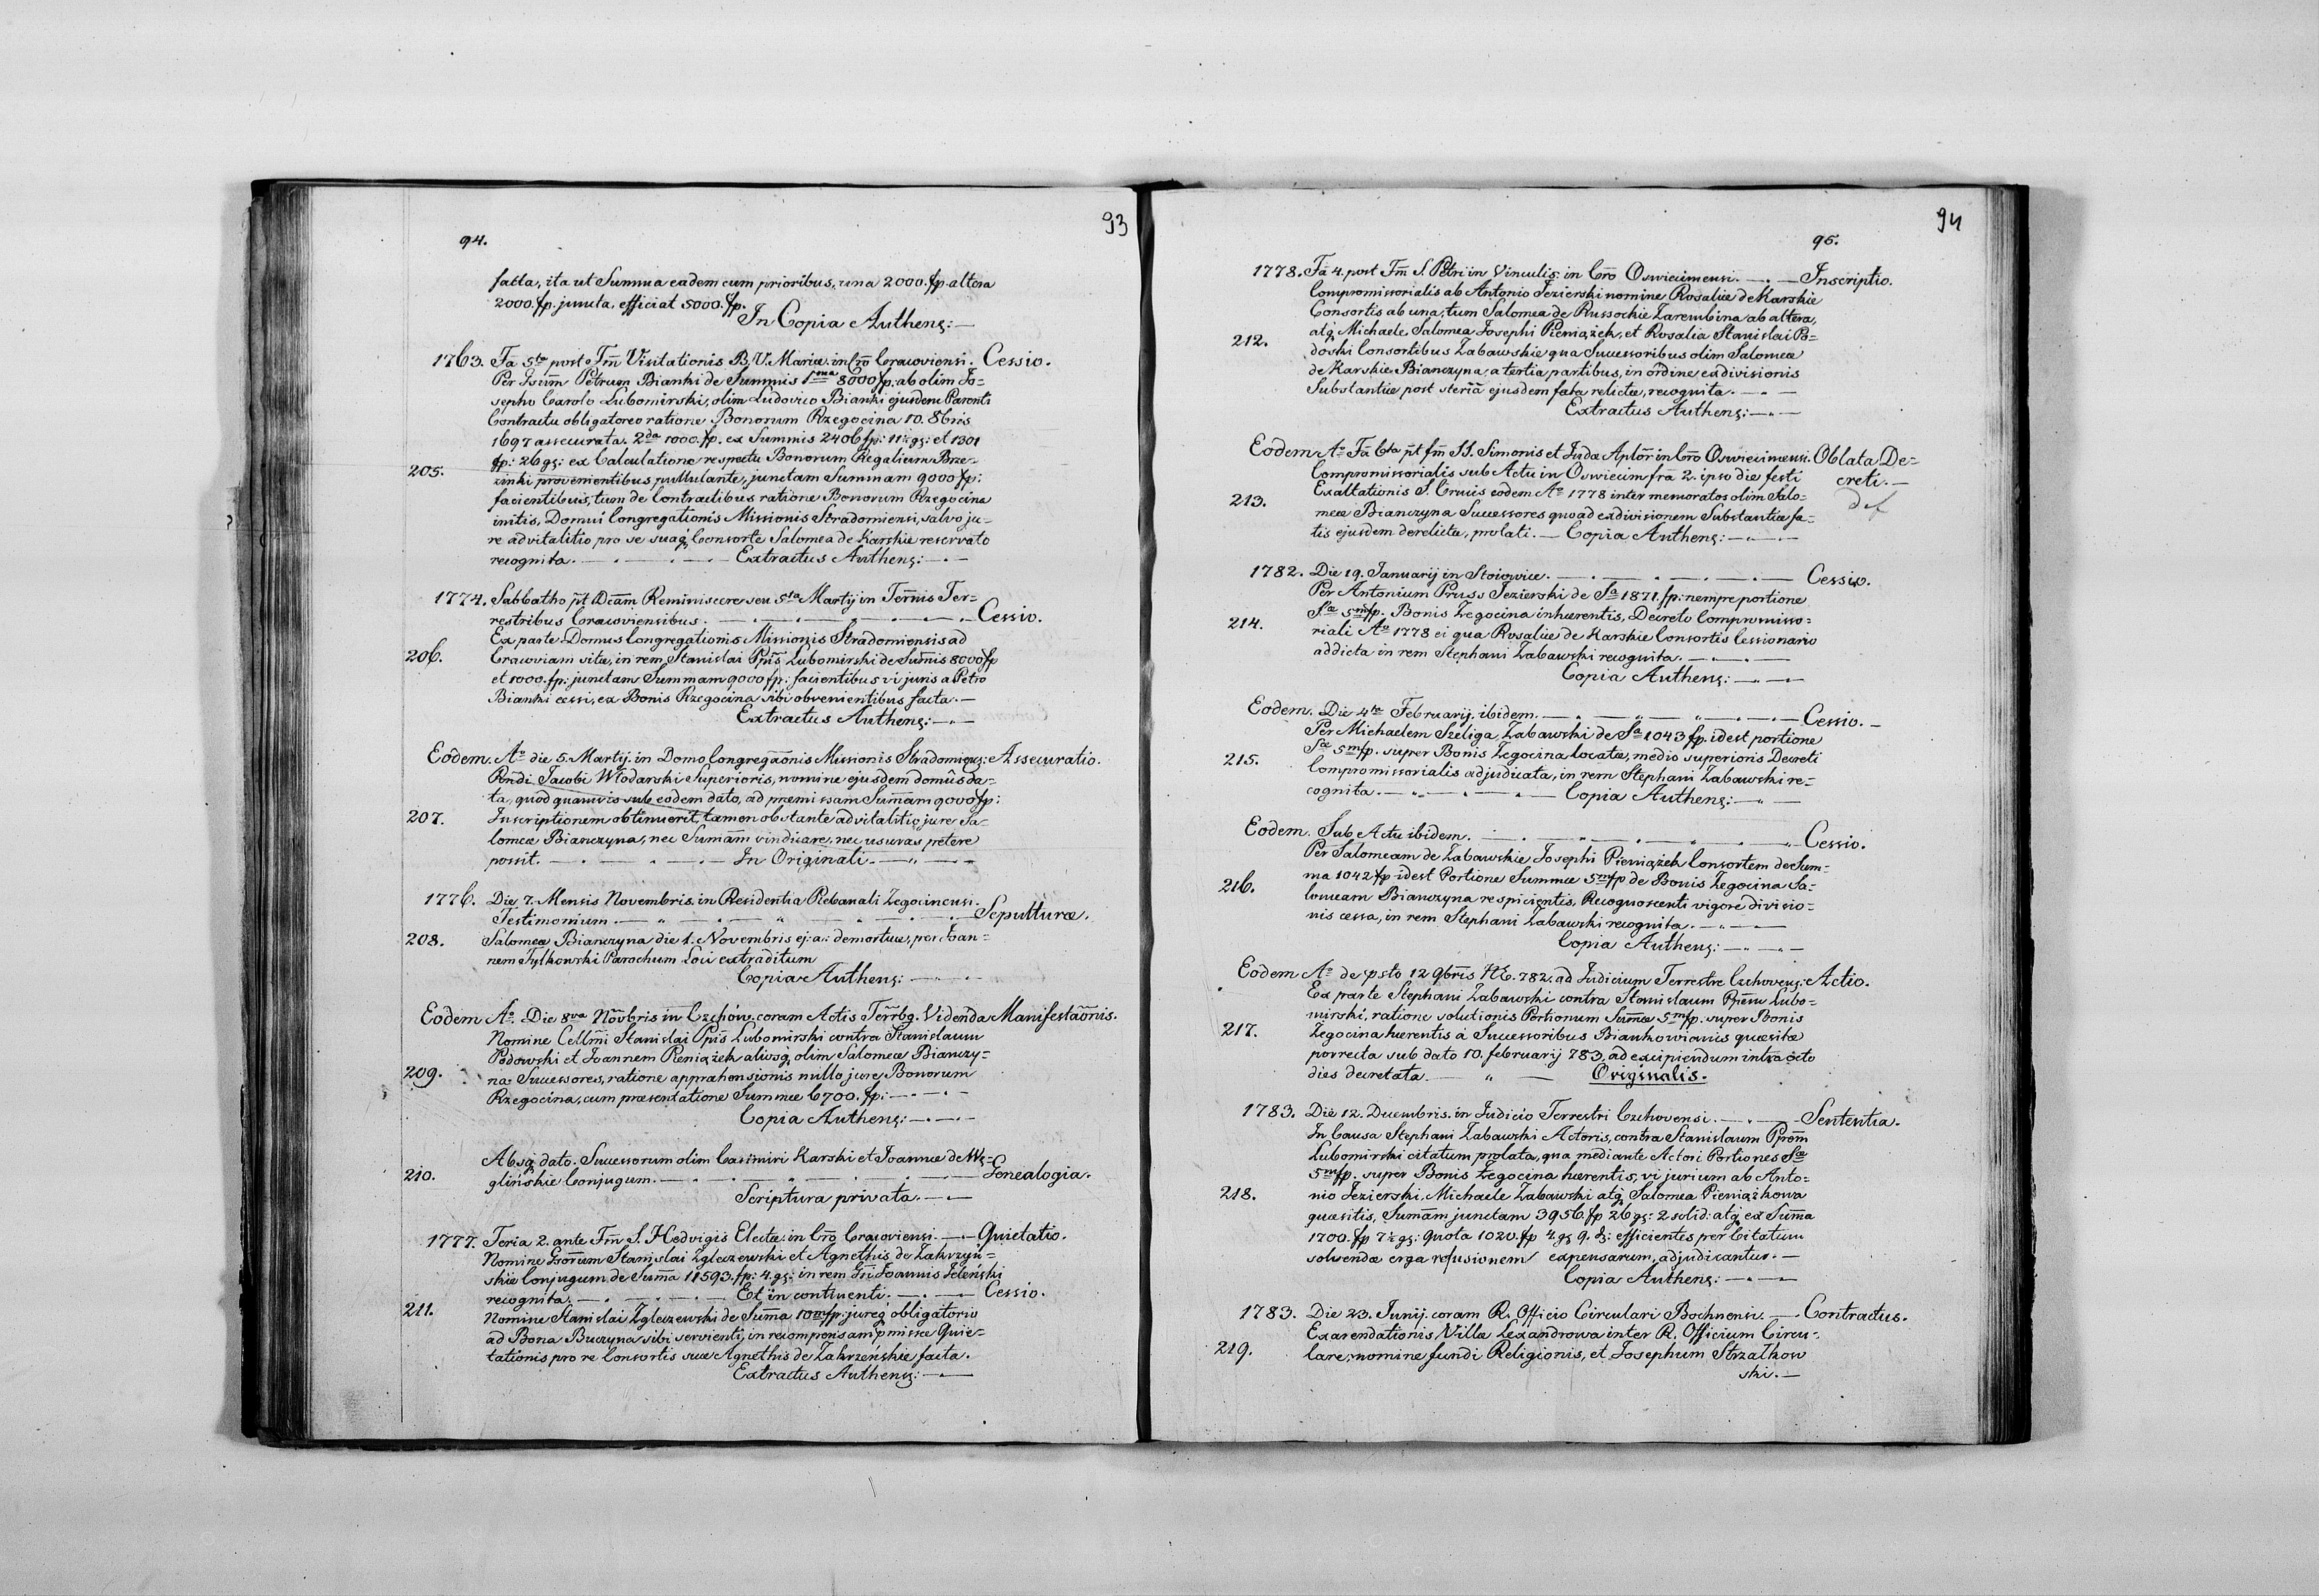 93
94.
facta, ita ut Summa eadem cum prioribus, una 2000. fp. altera
2000. fp. juncta, efficiat 5000. fp.
In Copia Autheng: —
1763. Fa 5ta post Fm̃ Visitationis B. V. Mariæ. in Crõ Cracoviensi. Cessio.
Per Gsum̃ Petrum Bianki de Summis 1ma 8000 fp: ab olim Jo-
sepho Carolo Lubomirski, olim Ludovico Bianki ejusdem Parenti
Contractu obligatoreo ratione Bonorum Rzegocina 10. 8bris
1697 assecurata. 2da 1000. fp. ex Summis 2406 fp: 11½ gs: et 1301
fp: 26 gs: ex Calculatione respectu Bonorum Regalium Brze-
205.
zinki provenientibus pullulante, junctam Summam 9000 fp:
facientibus, tum de Contractibus ratione Bonorum Rzegocina
initis, Domui Congregationis Missionis Stradomiensi, salvo ju-
re advitalitio pro se suaq Consorte Salomea de Karskie reservato
recognita. — Extractus Autheng: —
1774. Sabbatho p̃t Dcãm Reminiscere seu 5ta Martij in Termis Ter-
restribus Cracoviensibus. — Cessio.
Ex parte Domus Congregationis Missionis Stradomiensis ad
206.
Cracoviam sitæ, in rem Stanislai Ppis̃ Lubomirski de Sum̃is 8000 fp
et 1000. fp: junctam Summam 9000 fp: facientibus vi juris a Petro
Bianki cessi, ex Bonis Rzegocina sibi obvenientibus facta. —
Extractus Autheng: —
Eodem. Ao die 5. Martij. in Domo Congregãonis Missionis Stradomieng: Assecuratio.
Rendi Jacobi Włodarski Superioris, nomine ejusdem domûs da-
ta, quod quamvis sub eodem dato, ad præmissam Sum̃am 9000 fp:
207.
Inscriptionem obtinuerit, tamen obstante advitalitio jure Sa-
lomeæ Bianczyna, nec Sumãm vindicare, nec usuras petere
possit. — In Originali. —
1776. Die 7. Mensis Novembris. in Residentia Plebanali Zegocinensi.
Testimonium. — Sepulturæ.
208.
Salomeæ Bianczyna die 1. Novembris ej: a: demortuæ, per Joan-
nem Tylkowski Parochum Loci extraditum
Copia Autheng: —
Eodem Ao. Die 8va Noṽbris in Czchów. coram Actis Terrbg. Videnda Manifestaõnis.
Nomine Cellmi Stanislai Ppis̃ Lubomirski contra Stanislaum
Podowski et Joannem Pieniążek aliosq, olim Salomeæ Bianczy-
209.
na Successores, ratione apprahensionis nullo jure Bonorum
Rzegocina, cum præsentatione Summæ 6700. fp: —
Copia Autheng: —
Absq dato. Successorum olim Casimiri Karski et Joannæ de Wę-
210.
glińskie Conjugum. — Genealogia.
Scriptura privata. —
1777. Feria 2. ante Fm̃ S. Hedvigis Electæ in Crõ Cracoviensi. — Quietatio.
Nomine Gsorum Stanislai Zgleczewski et Agnethis de Zakrzyń-
skie Conjugum de Sum̃a 11593. fp: 4. gs: in rem Gsi Joannis Jeleński
recognita. — Et in continenti. — Cessio.
211.
Nomine Stanislai Zgleczewski de Sum̃a 10m fp: jureq obligatorio
ad Bona Buczyna sibi servienti, in recompensam p̃missæ Quie-
tationis pro re Consortis suæ Agnethis de Zakrzeńskie facta.
Extractus Autheng: —
94
95.
1778. Fa 4. post Fm̃ S. Petri in Vinculis: in Crõ Oswiecimensi. — Inscriptio.
Compromissorialis ab Antonio Jezierski nomine Rosaliæ de Karskie
Consortis ab una, tum Salomea de Russockie Zarembina ab altera,
atq Michaele, Salomea Josephi Pieniążek, et Rosalia Stanislai Po-
212.
doski Consortibus Zabawskie qua Successoribus olim Salomeæ
de Karskie Bianczyna, a tertia partibus, in ordine exdivisionis
Substantiæ post sterilã ejusdem fata relictæ, recognita. —
Extractus Autheng: —
Eodem Ao Fa 6ta p̃t fm̃ SS. Simonis et Judæ Aplor̃ in Crõ Oswiecimensi. Oblata De-
Compromissorialis sub Actu in Oswiecim fra 2. ipso die festi creti. —
213.
Exaltationis S. Crucis eodem Ao 1778 inter memoratos olim Salo-
meæ Bianczyna Successores quoad exdivisionem Substantiæ fa-
tis ejusdem derelictæ, prolati. — Copia Autheng: —
1782. Die 19. Januarij in Stoiowice. — Cessio.
Per Antonium Pruss Jezierski de Sa 1871. fp: nempe portione
Sæ 5m fp. Bonis Zegocina inhærentis, Decreto Compromisso-
214.
riali Ao 1778 ei qua Rosaliæ de Karskie Consortis Cessionario
addicta in rem Stephani Zabawski recognita. —
Copia Autheng: —
Eodem. Die 4ta Februarij. ibidem. — Cessio. —
Per Michaelem Szeliga Zabawski de Sa 1043 fp. idest portione
Sæ 5m fp. super Bonis Zegocina locatæ, medio superioris Decreti
215.
Compromissorialis adjudicata, in rem Stephani Zabawski re-
cognita. — Copia Autheng: —
Eodem. Sub Actu ibidem. — Cessio.
Per Salomeam de Zabawskie Josephi Pieniążek Consortem de Sum-
ma 1042 fp idest Portione Summæ 5m fp de Bonis Zegocina Sa-
216.
lomeam Bianczyna respicientis, Recognoscenti vigore divisio-
nis cessa, in rem Stephani Zabawski recognita. —
Copia Autheng: —
Eodem Ao de psto 12 9bris 782. ad Judicium Terrestre Czchoveng: Actio.
Ex parte Stephani Zabawski contra Stanislaum Ppem Lubo-
mirski, ratione solutionis Portionum Sum̃æ 5m fp. super Bonis
217.
Zegocina hærentis à Successoribus Biankowianis quæsitæ
porrecta sub dato 10. februarij 783, ad excipiendum intra octo
dies decretata. — Originalis.
1783. Die 12. Decembris. in Judicio Terrestri Czchovensi. — Sententia.
In Causa Stephani Zabawski Actoris, contra Stanislaum Ppem
Lubomirski citatum prolata, qua mediante Actori Portiones Sæ
5m fp. super Bonis Zegocina hærentis, vi jurium ab Anto-
218.
nio Jezierski, Michaele Zabawski atq Salomea Pieniążkowa
quæsitis, Sumãm junctam 3956. fp 26 gs: 2 solid: atq ex Sum̃a
1700. fp 7½ gs: quota 1020. fp 4. gs 9. d: efficientis per Citatum
solvendæ erga refusionem expensarum, adjudicantur. —
Copia Autheng: —
1783. Die 23. Junij. coram R. Officio Circulari Bochnensi. — Contractus.
Exarendationis Villæ Lexandrowa inter R. Officium Circu-
219.
lare, nomine fundi Religionis, et Josephum Strzałkow
ski. —